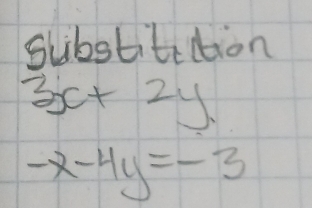 substitution
3x + 2y.
-x-4y=-3